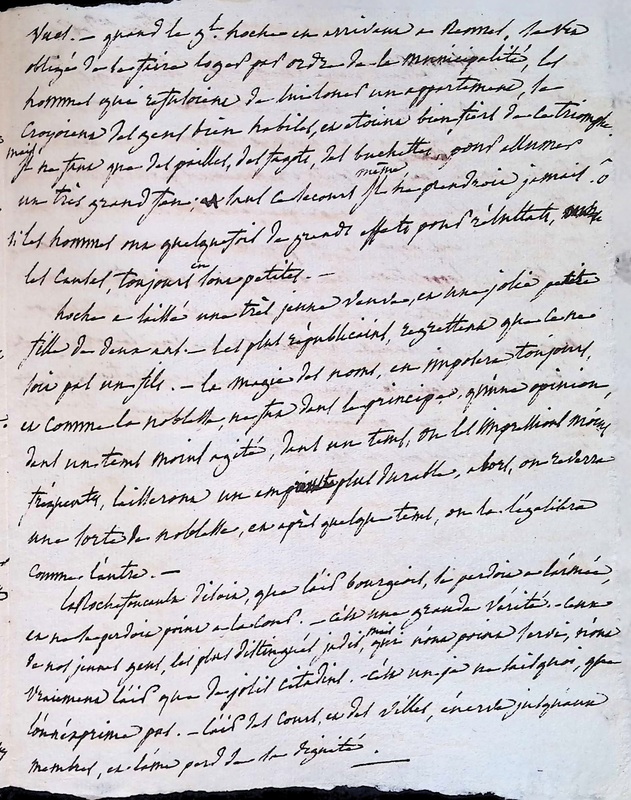 vues. – quand le gal hoche en arrivant a Rennes, se vit
obligé de se faire loger par ordre de la municipalité, les
hommes qui refusoient de lui louer un appartement, se
croyoient des gens bien habiles, et etoient bien fiers de ce triomphe,
mais
il ne faut que des pailles, des fagots, des buchettes pour allumer
même
un très grand feu, sans ce secours il ne prendroit jamais. ô
si les hommes ont quelquefois de grands effets pour résultats,
en
les causes, toujours sont petites. –
hoche a laissé une très jeune veuve, et une jolie petite
fille de deux ans. – les plus républicains, regrettent que ce ne
soit pas un fils. – la magie des noms, en imposera toujours,
et comme la noblesse, ne fut dans le principe, qu'une opinion,
dans un tems moins agité, dans un tems, ou les impressions moins
fréquentes, laisseront une empreinte plus durable, alors, on reverra
une sorte de noblesse, et après quelque tems, on la légalisera
comme l'autre. –
LaRochefoucauld disoit, que l'air bourgeois, se perdoit a l'armée,
et ne se perdoit point a la cour. – c'est une grande vérité. –
mais
de nos jeunes gens, les plus distingués jadis, qui n'ont point servi, n'ont
vraiment l'air que de jolis citadins. – c'est un je ne sais quoi, que
l'on n'exprime pas. – l'air des cours, et des villes, énerve jusqu'aux
membres, et l'âme perd de sa dignité.